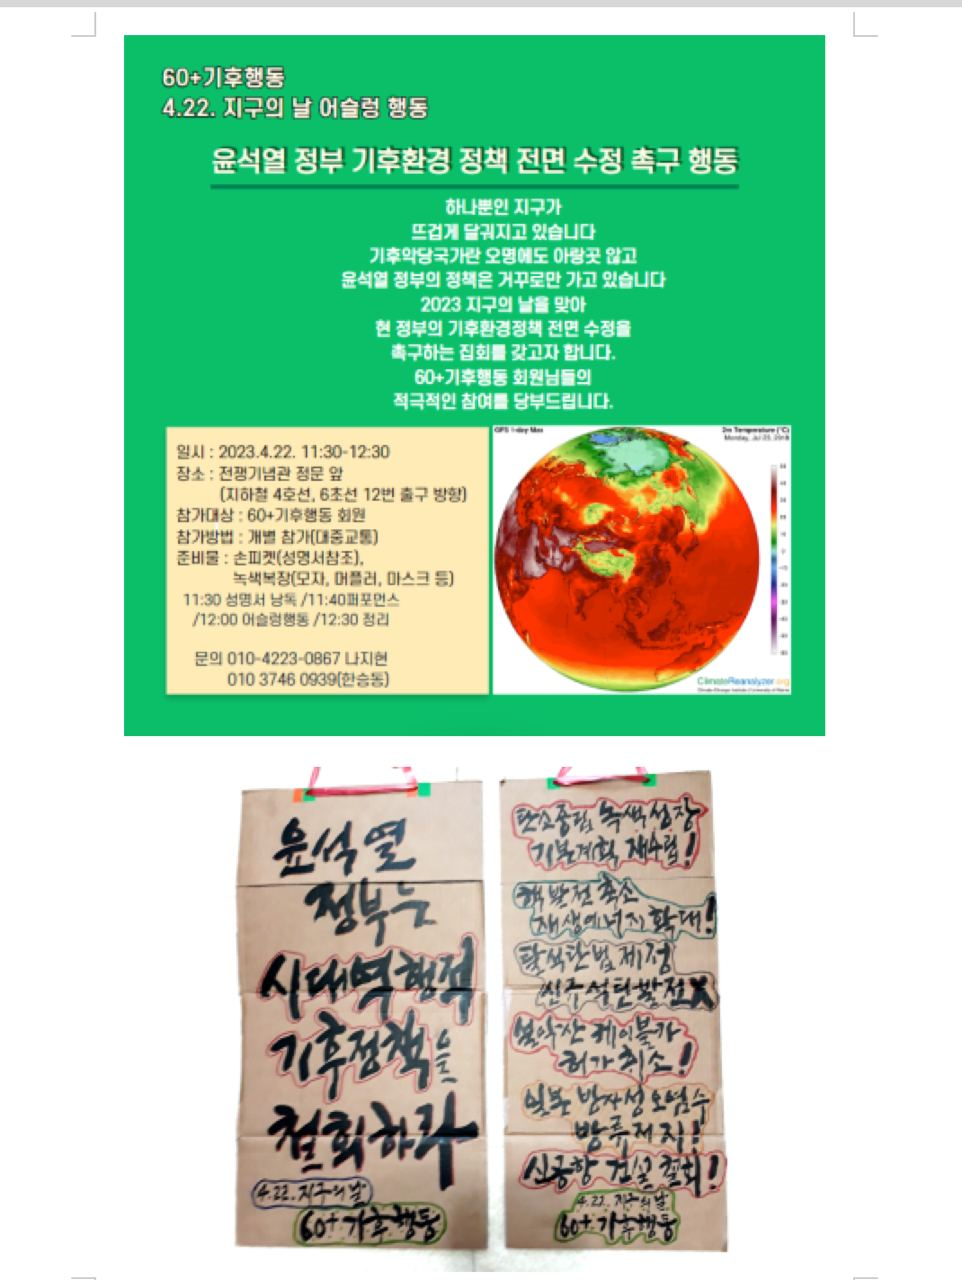 60+기후행동
4.22. 지구의 날 어슬렁 행동
윤석열 정부 기후환경 정책 전면 수정 촉구 행동
하나뿐인 지구가
뜨겁게 달궈지고 있습니다
기후악당국가란 오명에도 아랑곳 않고
윤석열 정부의 정책은 거꾸로만 가고 있습니다
2023 지구의 날을 맞아
현 정부의 기후환경정책 전면 수정을
촉구하는 집회를 갖고자 합니다.
60+기후행동 회원님들의
적극적인 참여를 당부드립니다.
일시 : 2023.4.22. 11:30-12:30
장소 : 전쟁기념관 정문 앞
(지하철 4호선, 6호선 12번 출구 방향)
참가대상 : 60+기후행동 회원
참가방법 : 개별 참가(대중교통)
준비물 : 손피켓(성명서참조),
녹색복장(모자, 머플러, 마스크 등)
11:30 성명서 낭독 /11:40퍼포먼스
/12:00 어슬렁행동 /12:30 정리
문의 010-4223-0867 나지현
010 3746 0939(한승동)
GFS 1-day Max
2m Temperature (°C)
Monday, Jul 23, 2018
ClimateReanalyzer.org
Climate Change Institute | University of Maine
윤석열
정부는
시대역행적
기후정책을
철회하라
4.22. 지구의 날
60+ 기후행동
탄소중립 녹색성장
기본계획 재수립!
핵발전 축소
재생에너지 확대!
탈석탄법 제정
신규 석탄발전 X
설악산 케이블카
허가 취소!
일본 방사성 오염수
방류 저지!
신공항 건설 철회!
4.22. 지구의 날
60+ 기후행동